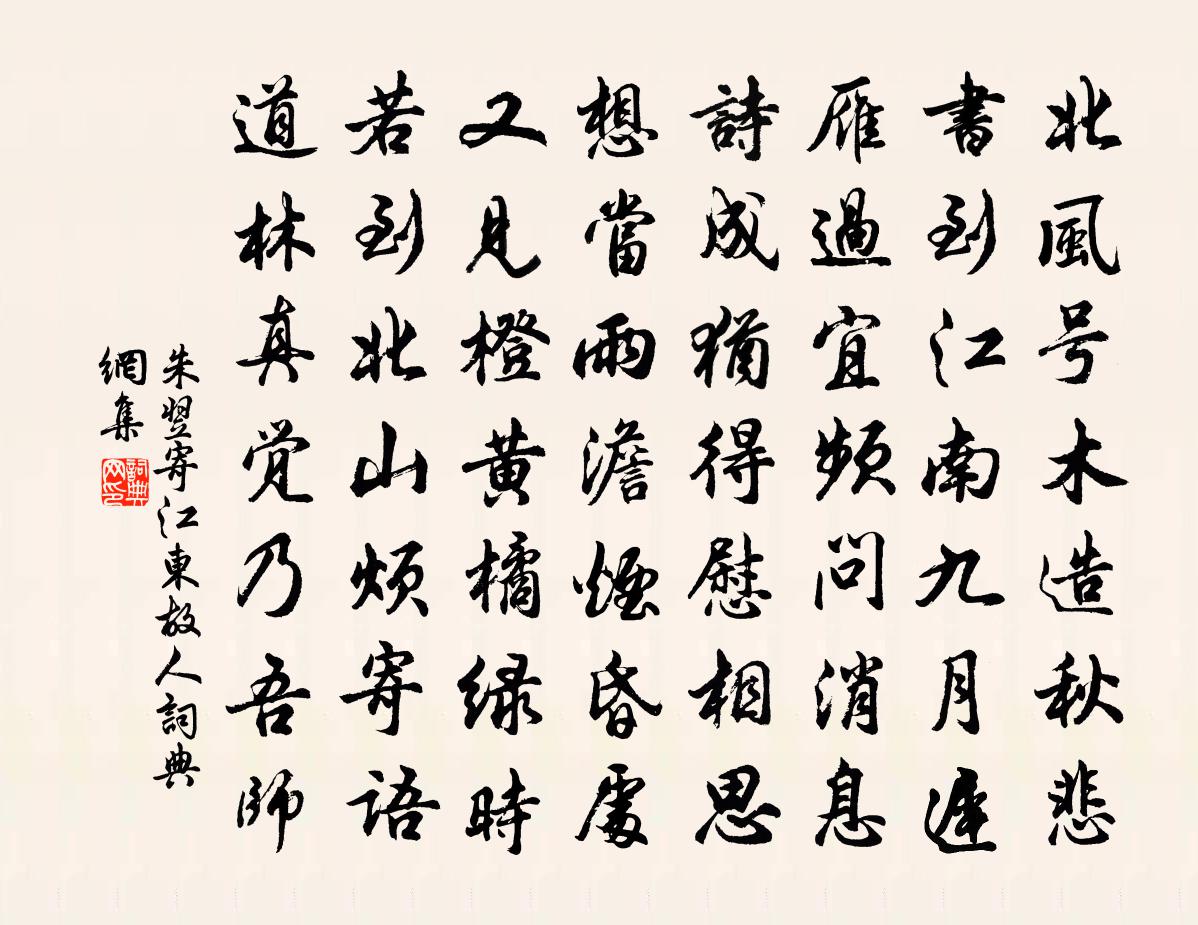 北風号木造秋悲
書到江南九月遲
雁過宜頻問消息
詩成猶得慰相思
想當雨澹煙昏處
又見橙黄橘緑時
若到北山煩寄語
道林真覚乃吾師
朱翌寄江東故人詞典
網集
詞典
网印